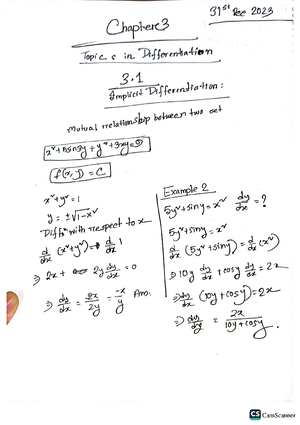 31st Dec 2023
Chapter 3
Topic c in Differentiation
3.1
Implicit Differentiation:
Mutual relationship between two set
f(x, y) = C
x² + y² = 1
y = ±√1-x²
Diffⁿ with respect to x
d/dx (x² + y²) = d/dx 1
⇒ 2x + 2y dy/dx = 0
⇒ dy/dx = -2x/2y = -x/y Ans:
Example 2
5y² + siny = x² dy/dx = ?
5y² + siny = x²
d/dx (5y² + siny) = d/dx (x²)
⇒ 10y dy/dx + cosy dy/dx = 2x
⇒ dy/dx (10y + cosy) = 2x
⇒ dy/dx = 2x/10y + cosy
CS CamScanner